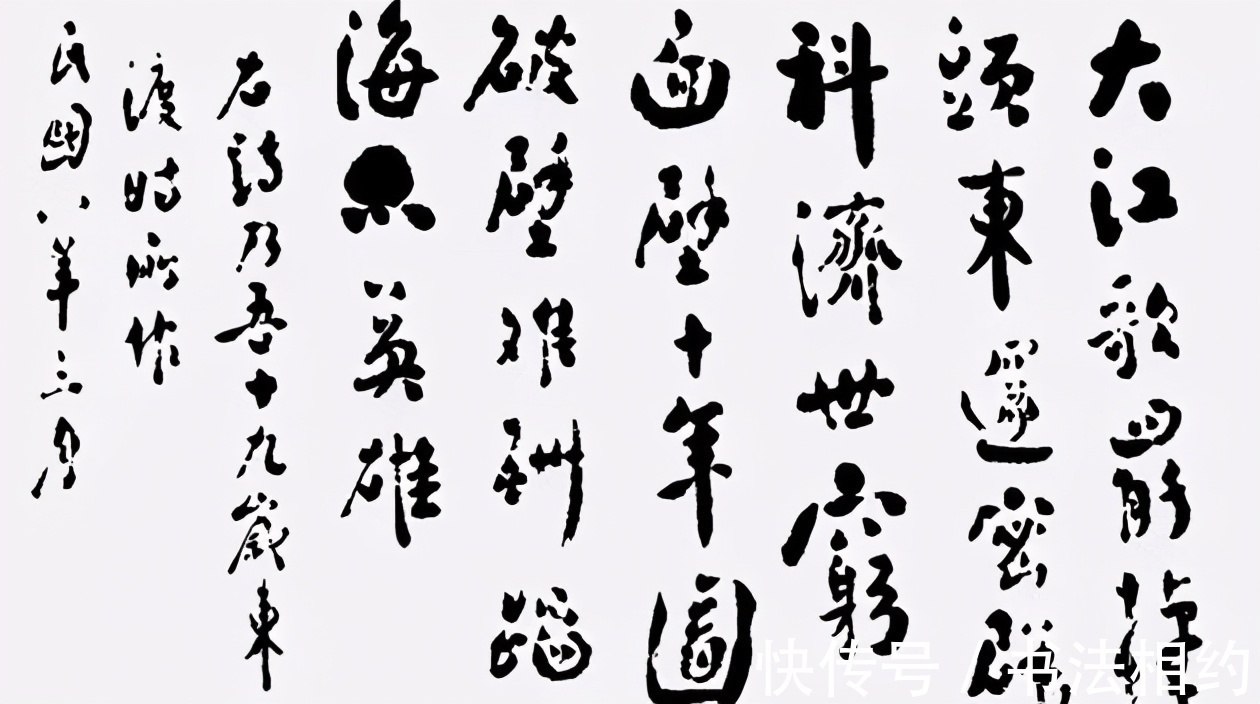 大江歌罷棹
頭東邃密群
科濟世窮
面壁十年圖
破壁難酬蹈
海亦英雄
右詩乃吾十九歲東
渡時所作
民國八年三月
快传号 / 书法相约